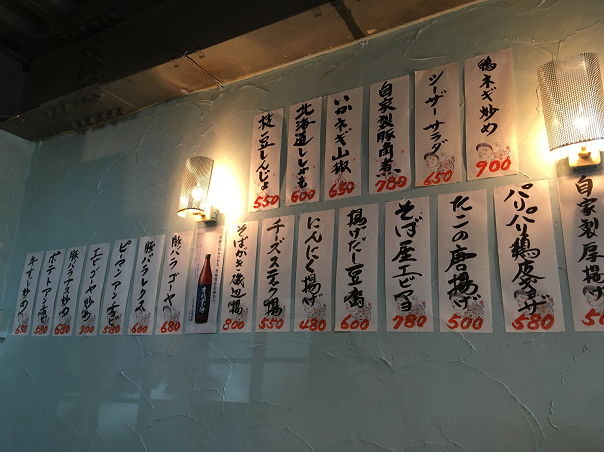 鴨ネギ炒め
900
シーザーサラダ
650
自家製豚角煮
780
いかネギ山椒
650
北海道ししゃも
600
枝豆しんじょ
550
自家製厚揚
パリパリ鶏皮ギョーザ
580
たこの唐揚げ
500
そば屋エビマヨ
780
揚げだし豆腐
600
にんにく揚げ
480
チーズスティック
550
そばがき磯辺揚
800
豚バラゴーヤ
680
豚バラレタス
660
ピーマン
550
ゴーヤ炒め
豚バラナス炒め
680
ポテト